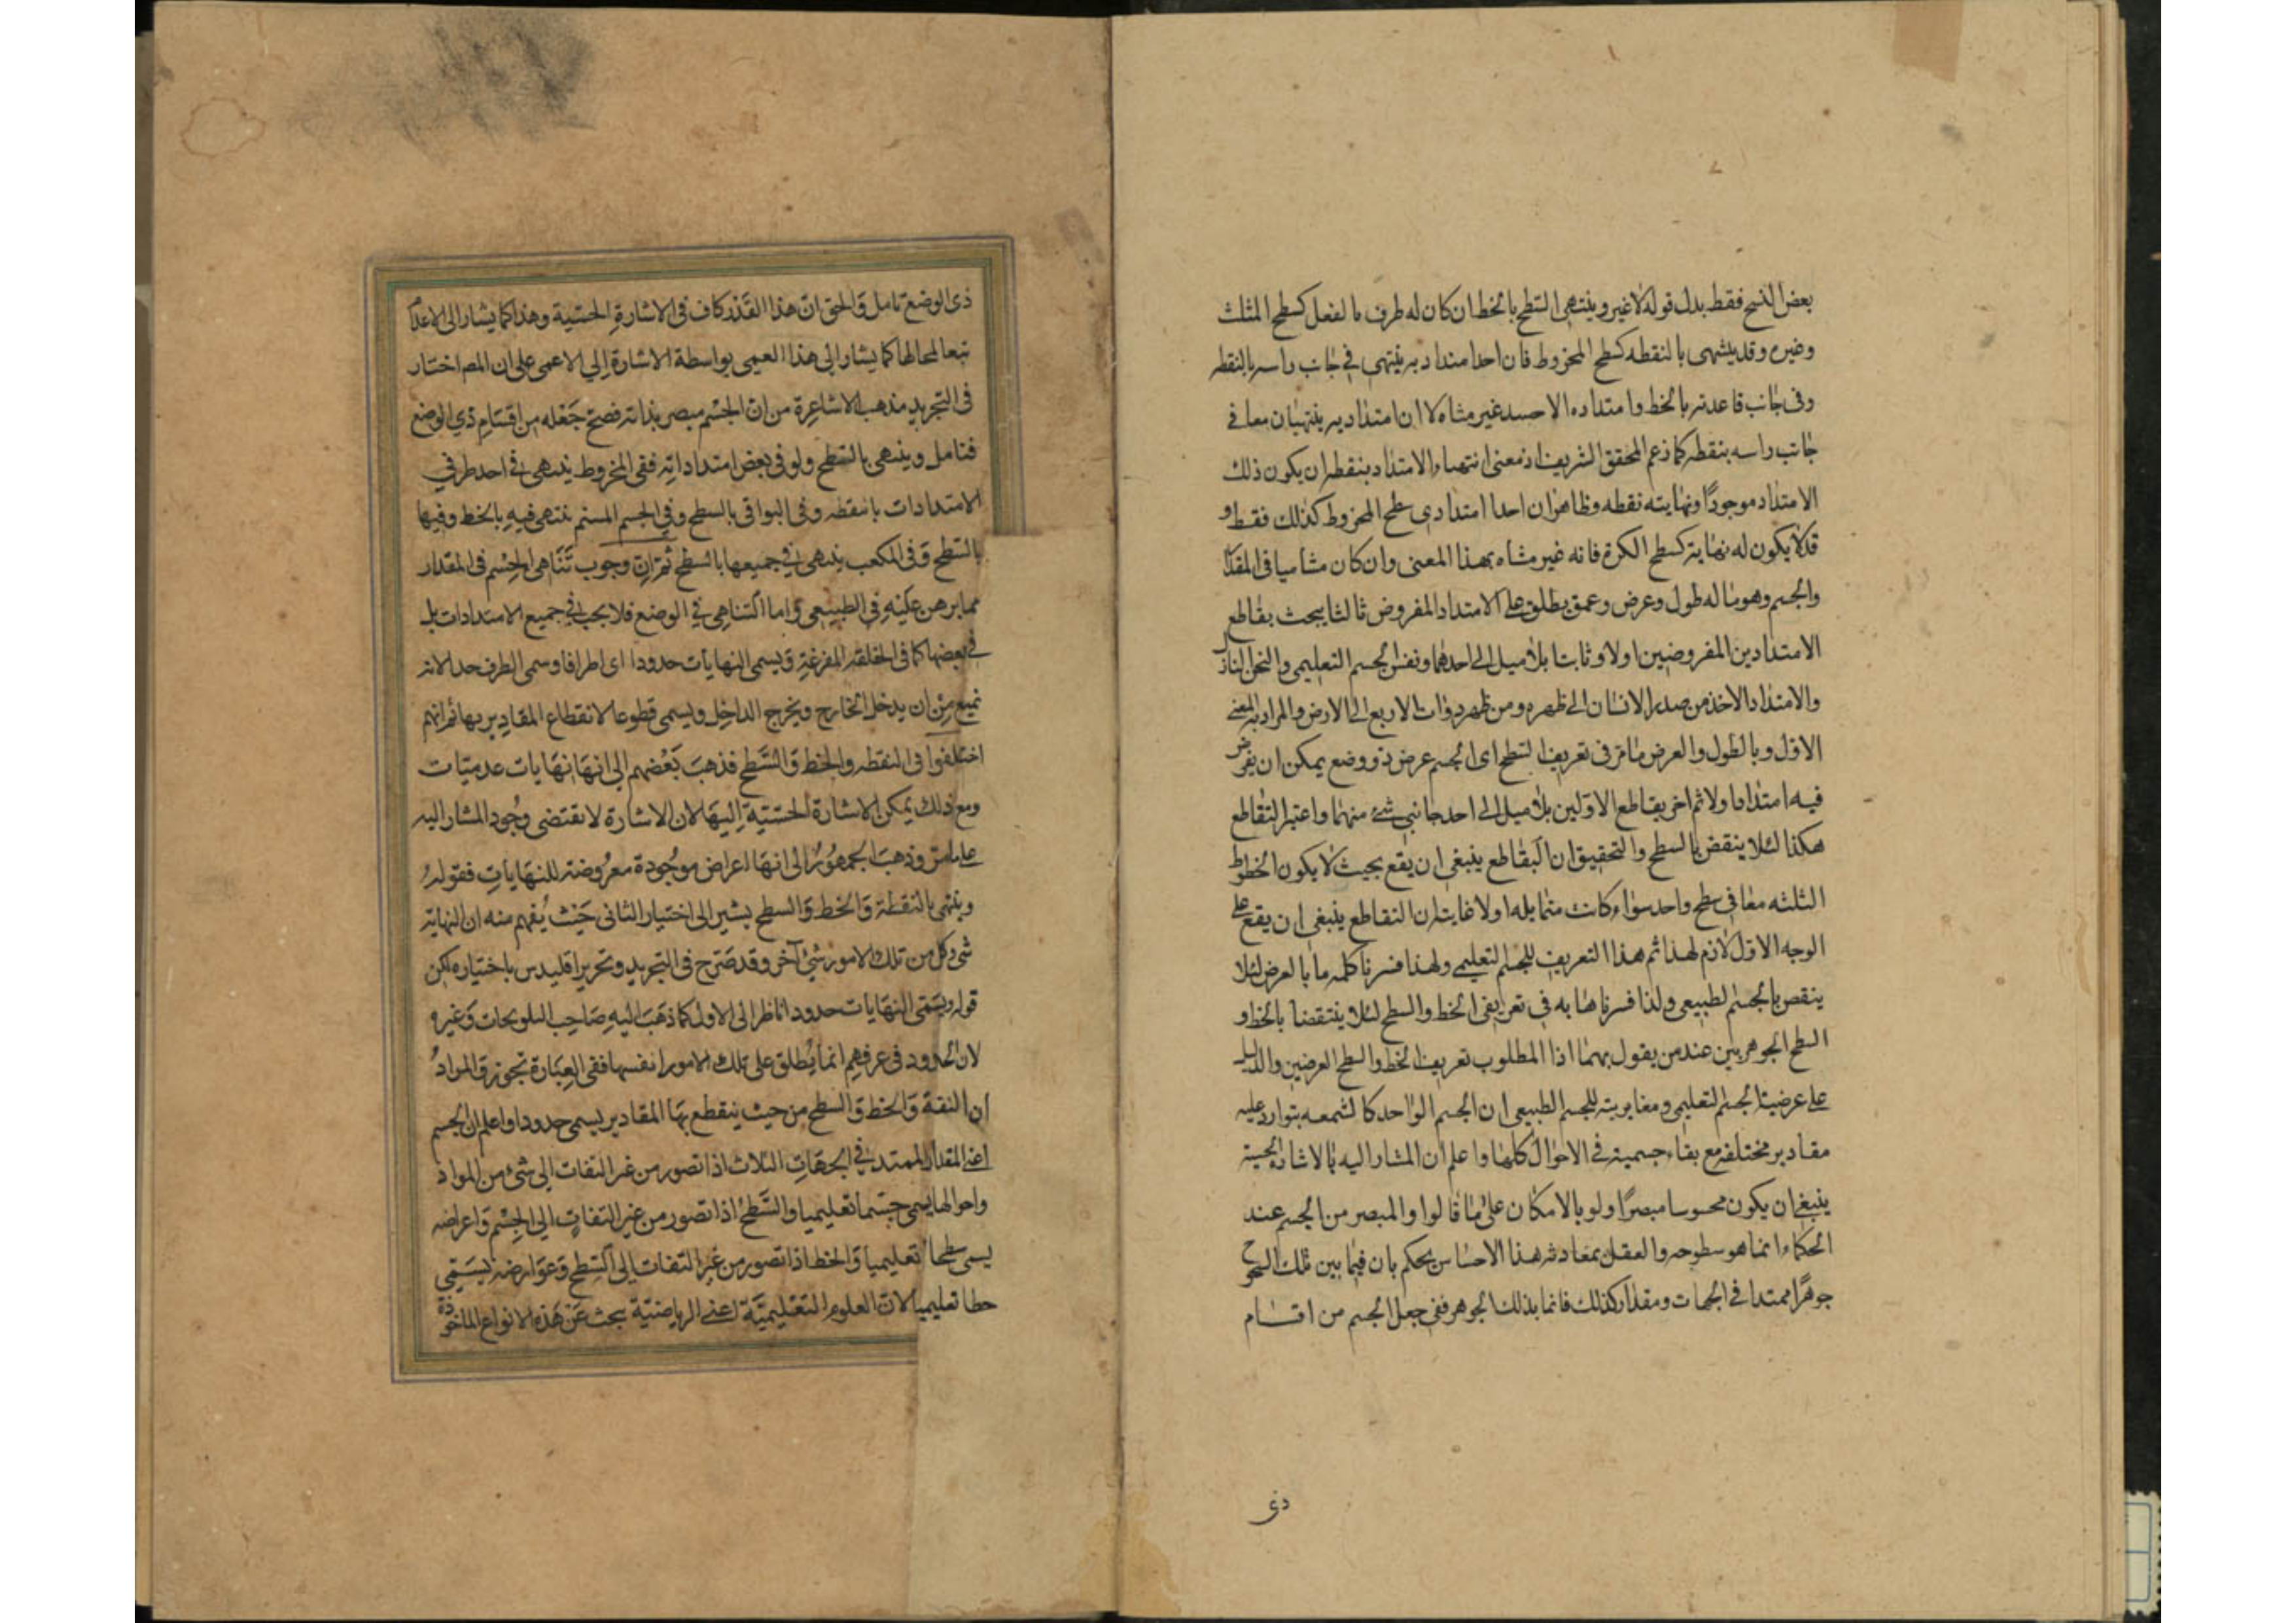 بعض النسخ فقط بدل قوله لا غير وينتهى السطح بالخط ان كان له طرف بالفعل كسطح المثلث
وغيره وقد ينتهى بالنقطه كسطح المخروط فان احد امتداديه ينتهى فى جانب راسه بالنقطه
وفى جانب قاعدته بالخط وامتداده الاخر غير متناه لا ان امتداديه ينتهيان معا فى
جانب راسه بنقطه كما زعم المحقق الشريف اذ معنى انتهاء الامتداد بنقطه ان يكون ذلك
الامتداد موجودًا ونهايته نقطه وظاهر ان احد امتدادى سطح المخروط كذلك فقط و
قد لا يكون له نهاية كسطح الكرة فانه غير متناه بهذا المعنى وان كان متناهيا فى المقدار
والجسم وهو ما له طول وعرض وعمق يطلق على الامتداد المفروض ثالثا بحيث يقاطع
الامتدادين المفروضين اولا وثانيا بلا ميل الى احدهما ونفس الجسم التعليمى والثخن النازل
والامتداد الاخذ من صدر الانسان الى ظهره ومن ظهر ذوات الاربع الى الارض والمراد به المعنى
الاول وبالطول والعرض ما مر فى تعريف السطح اى الجسم عرض ذو وضع يمكن ان يفرض
فيه امتداد اولا ثم اخر يقاطع الاولين بلا ميل الى احد جانبى شئ منهما واعتبر التقاطع
هكذا لئلا ينقض بالسطح والتحقيق ان التقاطع ينبغى ان يقع بحيث لا يكون الخطوط
الثلثه معا فى سطح واحد سواء كانت متمايله اولا غايته ان التقاطع ينبغى ان يقع على
الوجه الاول لازم لهذا ثم هذا التعريف للجسم التعليمى ولهذا فسرنا كلمه ما بالعرض لئلا
ينقض بالجسم الطبيعى ولذا فسرناها به فى تعريفى الخط والسطح لئلا ينتقضا بالخط و
السطح الجوهريين عند من يقول بهما اذا المطلوب تعريف الخط والسطح العرضيين والدليل
على عرضية الجسم التعليمى ومغايرته للجسم الطبيعى ان الجسم الواحد كالشمعه يتوارد عليه
مقادير مختلفه مع بقاء جسميته فى الاحوال كلها واعلم ان المشار اليه بالاشارة الحسية
ينبغى ان يكون محسوسا مبصرًا ولو بالامكان على ما قالوا والمبصر من الجسم عند
الحكماء انما هو سطوحه والعقل بمعاونه هذا الاحساس يحكم بان فيما بين تلك السطوح
جوهرًا ممتدا فى الجهات ومقدار كذلك قائما بذلك الجوهر ففى جعل الجسم من اقسام
ذى
ذى الوضع تامل وَالحق انّ هذا القَدْر كاف فى الاشارةِ الحسّية وهذا كما يشار الى الاعدا
تبعا لمحالها كما يشار الى هذا العمى بواسطة الاشارة اِلى الاعمى على ان المصـ اختار
فى التجريد مذهب الاشاعِرة من انّ الجِسْم مبصر بذاته فصحّ جَعْله من اقسَامِ ذي الوضع
فتامل وينتهى بالسَّطح ولو فى بعض امتداداته ففى المخروط ينتهى فى احد طرفي
الامتدادات بالنقطه وفى البواقى بالسطح وفى الجسم المسنم ينتهى فيه بالخط وفيها
بالسَّطح وَفى المكعب ينتهى فى جميعها بالسطح ثم انّ وجوب تَنَاهى الجِسْم فى المقدار
مما برهن عليَه فى الطبيعى وَاما التناهِى فى الوضع فلا يجب فى جميع الامتدادات بل
فى بعضها كما فى الحلقه المفرغة وَيسمى النهايات حدودا اى اطرافا وسمى الطرف حدا لانه
يمنع مِنْ ان يدخل الخارج ويخرج الداخِل ويسمى قطوعا لانقطاع المقادير بها ثم انهم
اختلفوا فى النقطه والخط وَالسَّطح فذهبَ بَعْضهم الى انهَا نهَايات عدميّات
ومع ذلك يمكن الاشارة الحسّيّة اِليهَا لان الاشارة لا تقتضى وجُود المشار اليه
على ما مرّ وذهبَ الجمهُورُ الى انهَا اعراض موجُودة معرُوضة للنهَاياتِ فقوله
وينتهى بالنقطة وَالخط وَالسطح يشير الى اختيار الثانى حَيْث يُفهم منه ان النهاية
شئ وكل من تلك الامور شئ آخر وقد صَرّح فى التجريد وتحرير اقليدس باختياره لكن
قوله ويسَمّى النهَايات حدودا ناظر الى الاول كما ذهَبَ اليهِ صَاحِب التلويحات وَغيره
لان الحدود فى عرفهِم انما يُطلق على تلك الامور انفسها ففى العِبَارة تجوز وَالمرادُ
ان النقة وَالخط وَالسطح من حيث ينقطع بهَا المقادير يسمى حدودا واعلم ان الجسم
اعنى المقدار الممتد فى الجهَاتِ الثلاث اذا تصور من غير التفات الى شئ من المواد
واحوالها يسمى جسْما تعليميا والسَّطحُ اذا تصور من غير التفاتٍ الى الجِسْم وَاعراضه
يسمى سطحا تعليميا وَالخط اذا تصور من غير التفات الى السّطحِ وَعوَارضه يسَمّى
خطا تعليميا لانّ العلوم التعْليميَّة اعنى الرياضيّة يبحث عَنْ هَذه الانواع الماخوذة